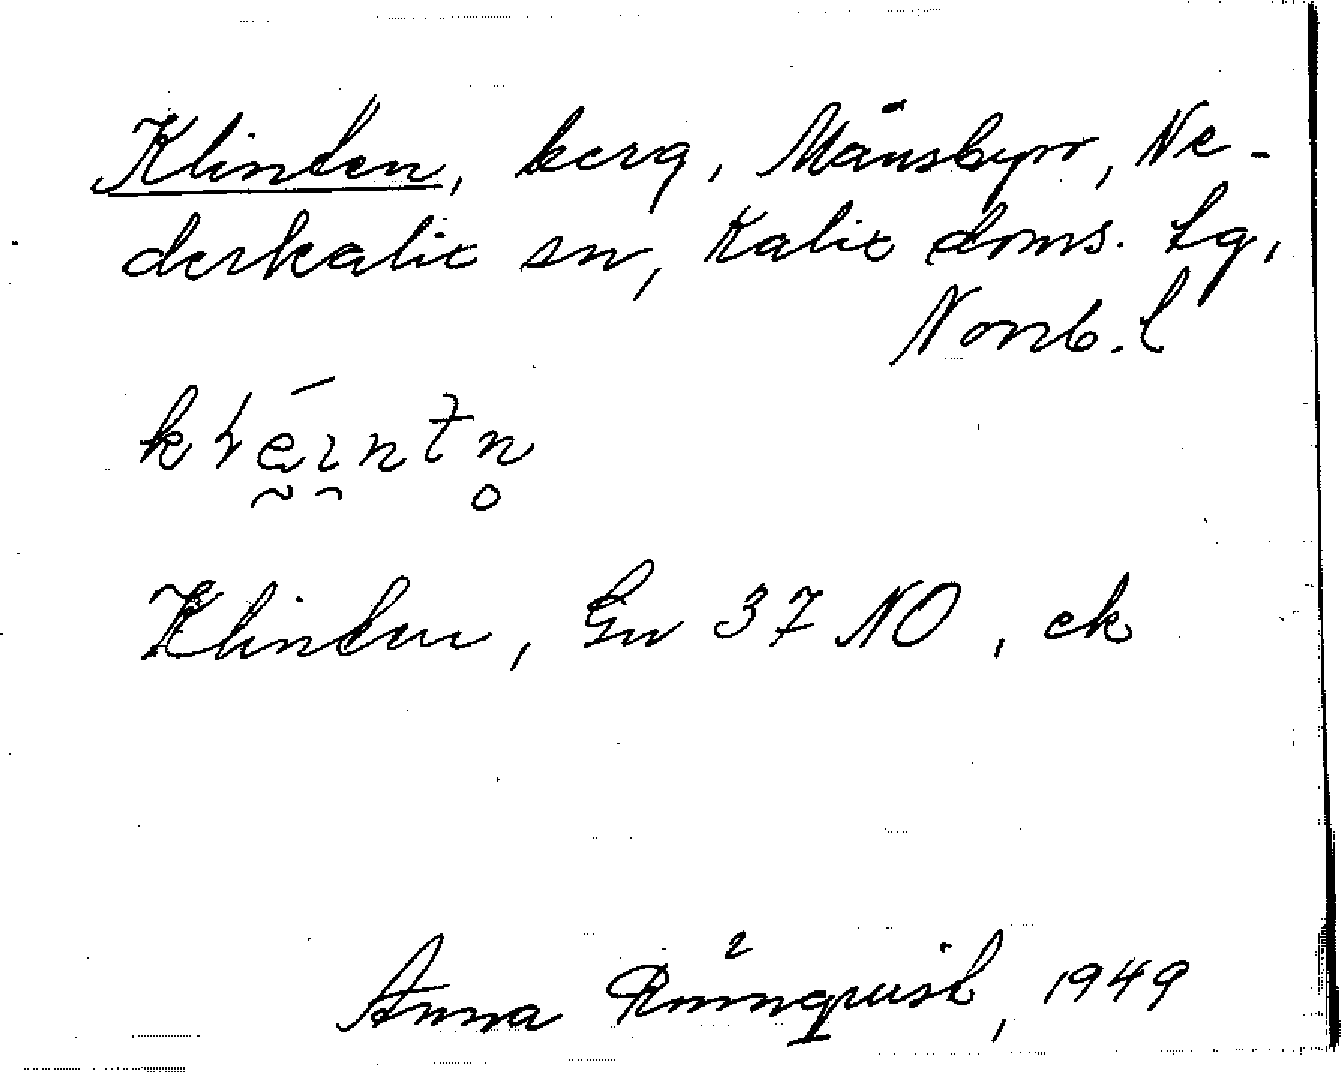 Klinten, berg, Månsbyn, Ne-
derkalix sn, Kalix doms. lg,
Norrb. l
Klinten, Gn 37 NO, ek
Anna Rönnquist, 1949